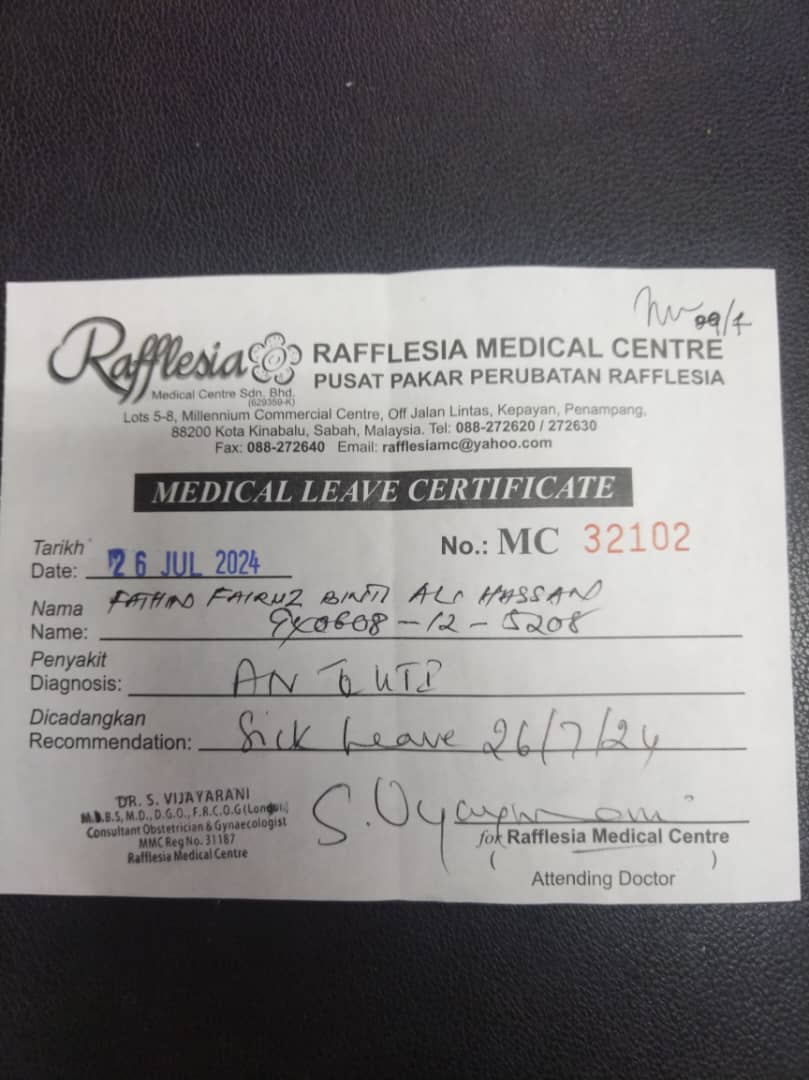 Rafflesia
Medical Centre Sdn. Bhd.
(629359-K)
RAFFLESIA MEDICAL CENTRE
PUSAT PAKAR PERUBATAN RAFFLESIA
Lots 5-8, Millennium Commercial Centre, Off Jalan Lintas, Kepayan, Penampang,
88200 Kota Kinabalu, Sabah, Malaysia. Tel: 088-272620 / 272630
Fax: 088-272640 Email: rafflesiamc@yahoo.com
MEDICAL LEAVE CERTIFICATE
No.: MC 32102
Tarikh
Date: 26 JUL 2024
Nama FAIRUZ BINTI ALI HASSAN
Name: -12-5208
Penyakit
Diagnosis: AN UTI
Dicadangkan
Recommendation: Sick Leave 26/7/24
DR. S. VIJAYARANI
M.B.B.S, M.D., D.G.O., F.R.C.O.G (London)
Consultant Obstetrician & Gynaecologist
MMC Reg No. 31187
Rafflesia Medical Centre
for Rafflesia Medical Centre
( )
Attending Doctor